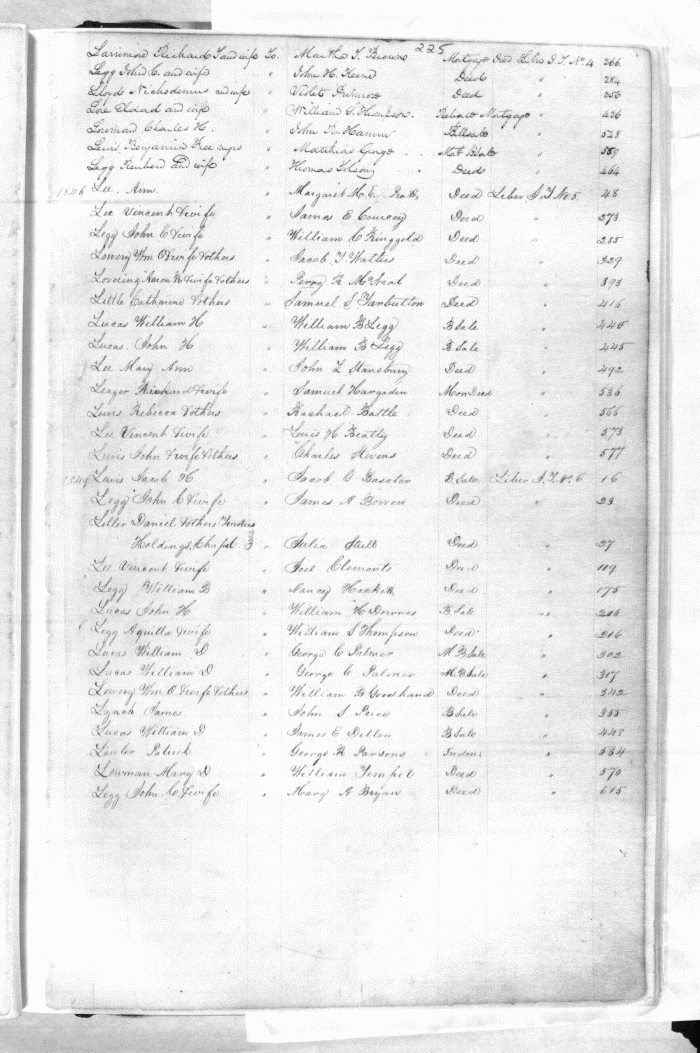 225
Larrimore Richard T and wife To Martha T. Browne Mortgage Deed Liber J. T. No 4 266
Legg John C and wife " John H. Deed " 284
Lloyd Nichodemus and wife " Violet Deed " 356
and wife " William S. Release Mortgage " 426
Lowman Charles H. " John B. Hamm Bill sale " 528
Lewis Benjamin Free negro " Matthias George " 559
Legg Reuben and wife " Thomas Deed " 464
1846 Lee. Ann. " Margaret M. E. Deed Liber J T No. 5 48
Lee Vincent & wife " James E Councey Deed " 273
Legg John C & wife " William C Ringgold Deed " 285
Lowery Wm O & wife & others " Jacob T Deed 329
Lovering Aaron N & wife & others " Perry R McNeal Deed " 393
Little Catharine & others " Samuel S Tarbutton Deed " 416
Lucas William H " William B Legg B Sale " 445
Lucas John H " William B Legg B. Sale " 445
Lee Mary Ann " John L Stansbury Deed " 492
Leager Richard & wife " Samuel Hargadin Mom Deed " 536
Lewis Rebecca & others " Rachael Battle Deed " 566
Lee Vincent & wife " Louis H Beatty Deed " 573
Lewis John & wife & others " Charles Hivens Deed " 577
Lewis Jacob H " Jacob C B Sale Liber J. T. No. 6 16
Legg John C & wife " James A Bowen Deed " 23
Daniel & others
Holdings Chapel " Julia Deed " 27
Lee Vincent & wife " Joel Clements Deed " 119
Legg William B " Nancy Hackett Deed " 175
Lucas John H " William H Downes B Sale " 205
Legg Aquilla & wife " William S Thompson Deed " 216
Lucas William D " George C Palmer M. B Sale " 302
Lucas William D " George C Palmer M. B Sale " 317
Lowery Wm O & wife & others " William B Goodhand Deed " 342
Lynch James " John S Price B Sale " 355
Lucas William D " James E Dillen B Sale " 448
Patrick " George R Parsons Inden: " 534
Lowman Mary D " William Temple Deed " 570
Legg John C & wife " Mary A Bryan Deed " 615